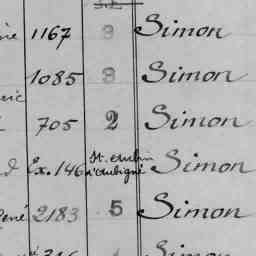 1167 3 Simon
1085 3 Simon
705 2 Simon
Ex. 146 St. Aubin d'Aubigné Simon
René 2183 5 Simon
Simon